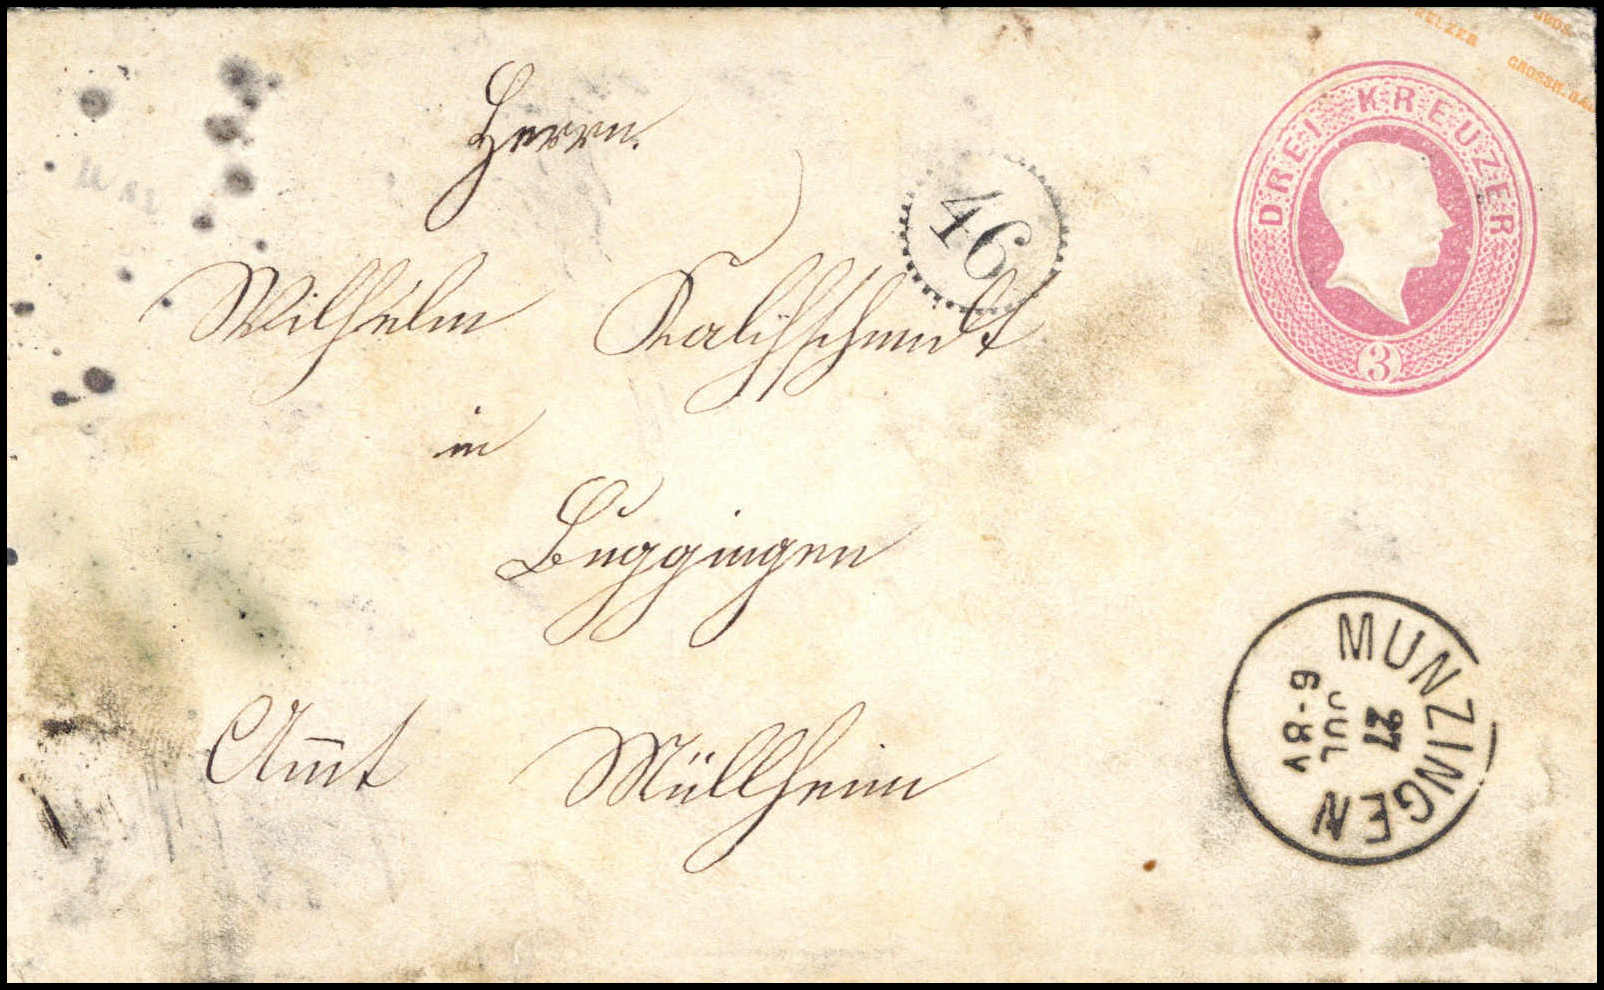 KREUZER
GROS
GROSSH. BAD
DREI KREUZER
3
Herrn
46
Wilhelm Kalchschmidt
in
Buggingen
Amt Müllheim
MUNZINGEN
27
JUL
6-8V